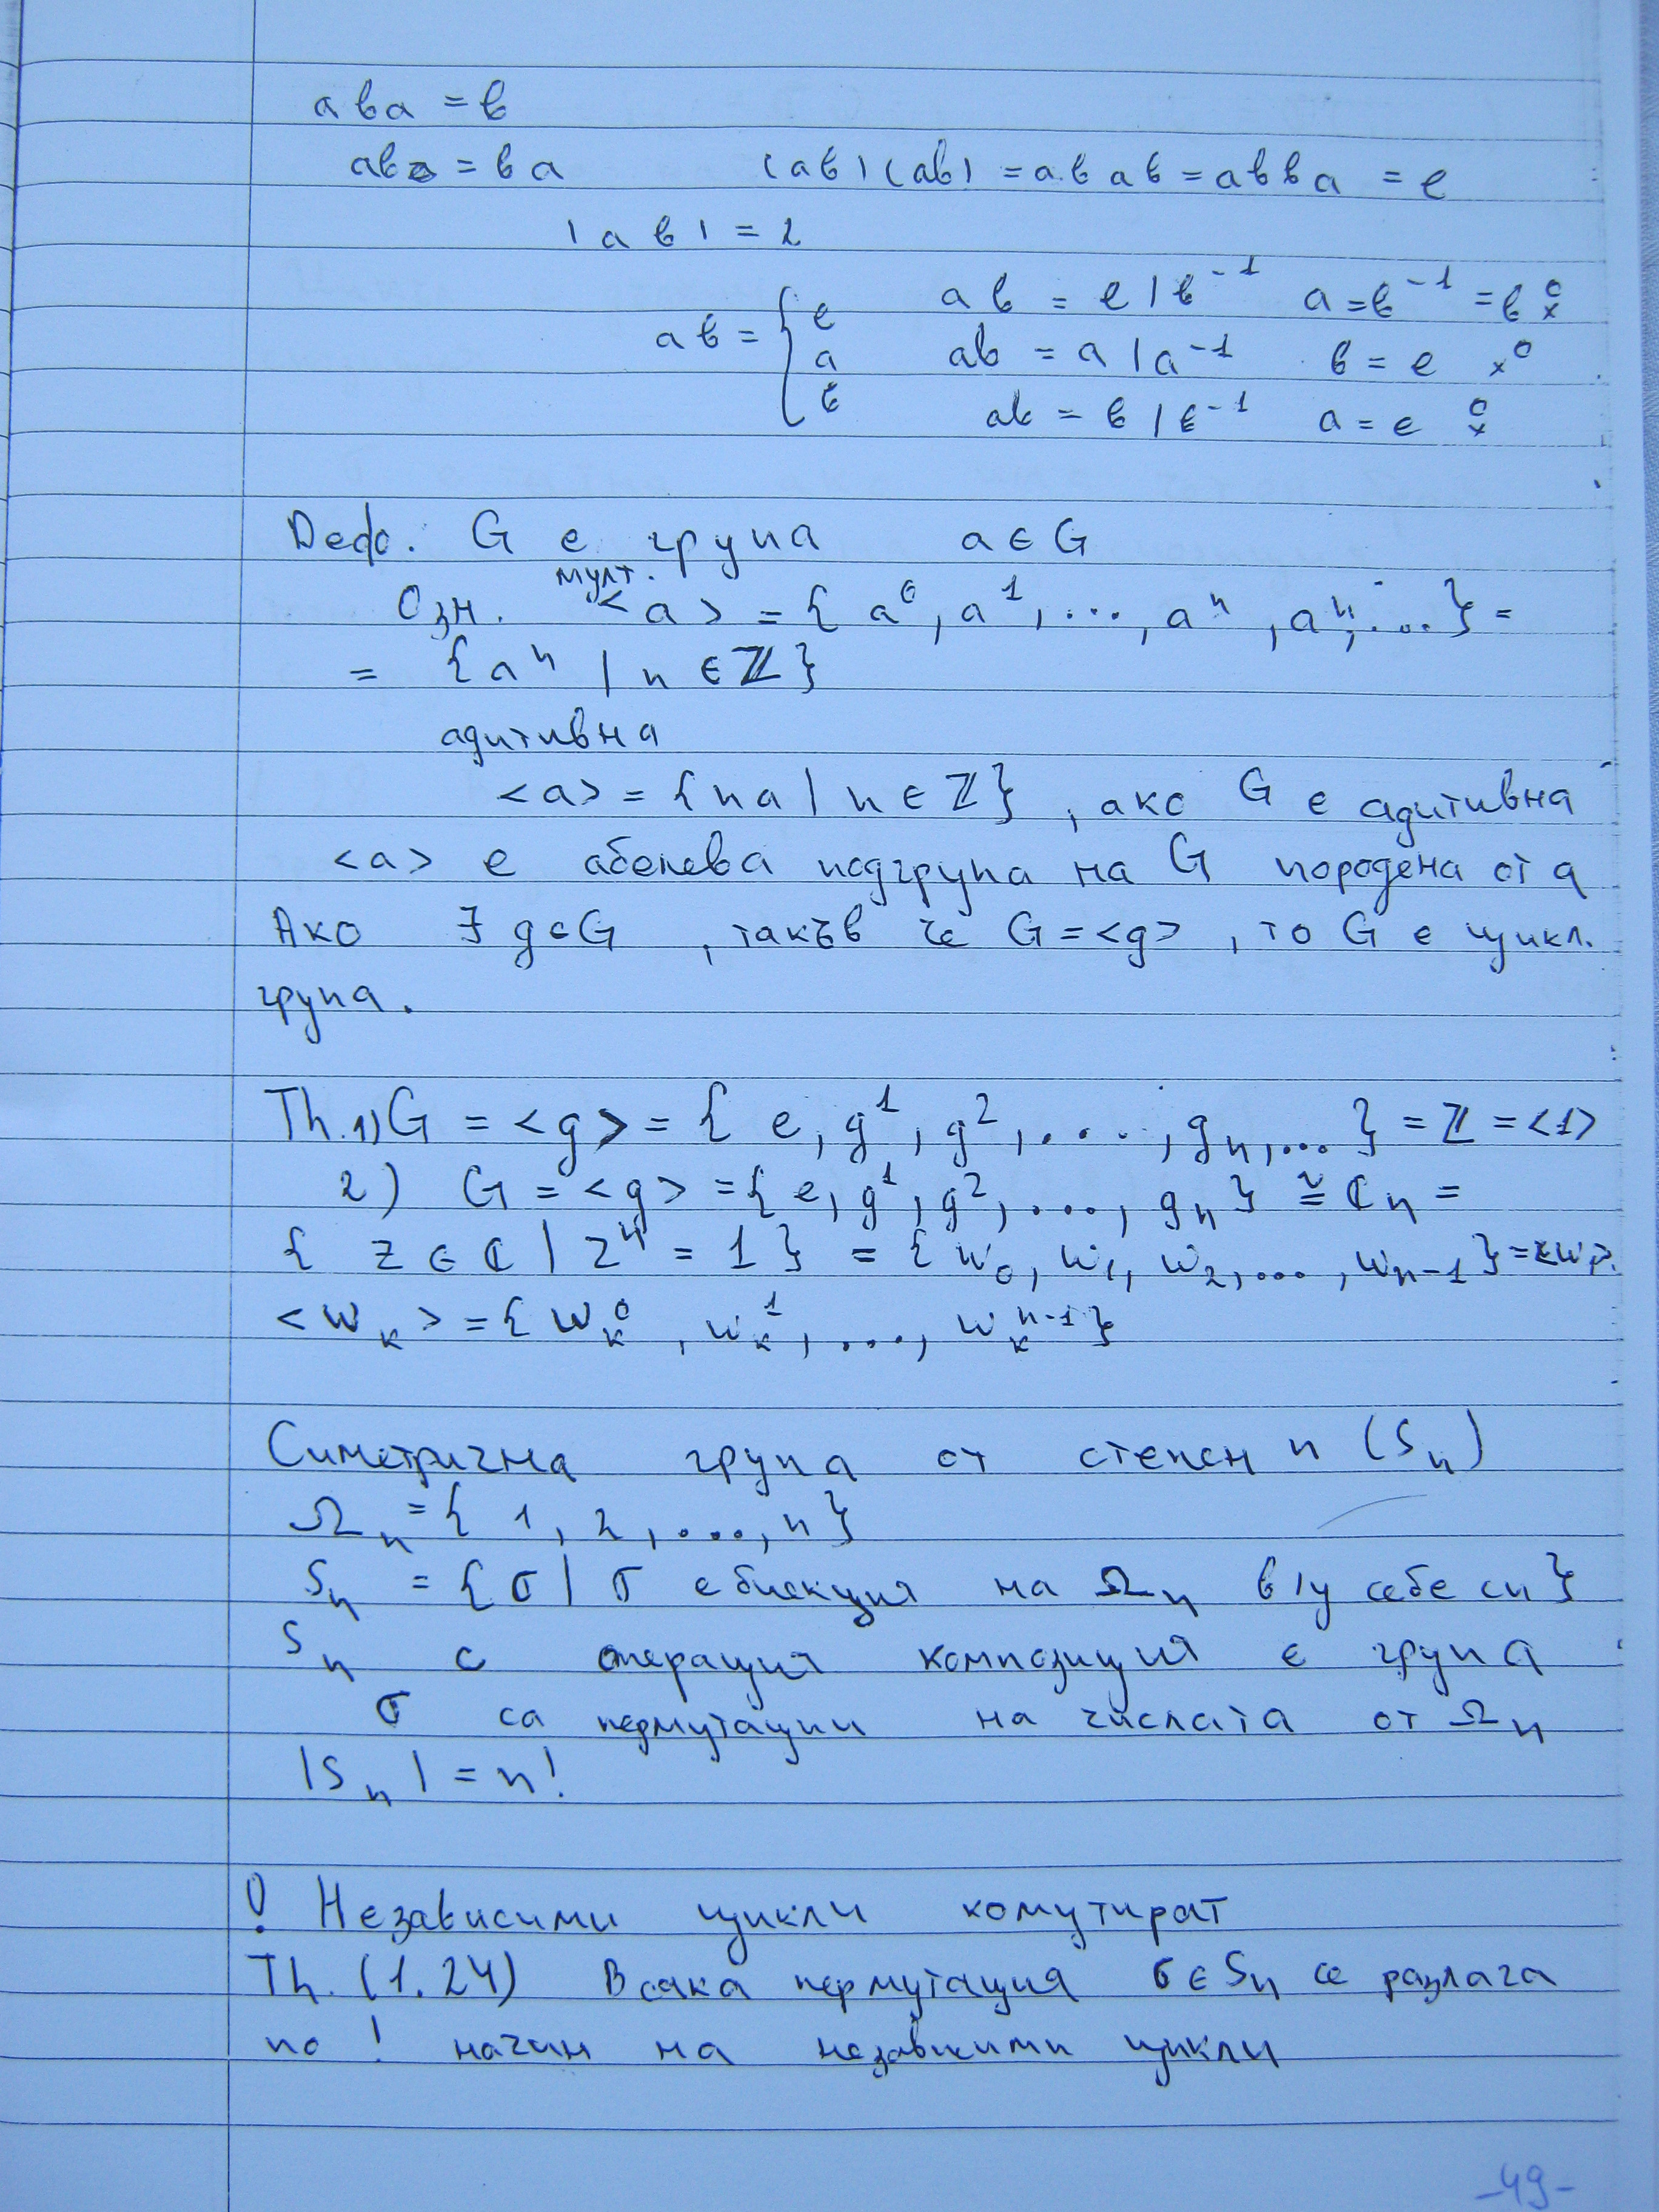 aва = в
ав = ва (ав)(ав) = авав = авва = е
|ав| = 2
ав = { е ав = е | в⁻¹ а = в⁻¹ = в
а ав = а | а⁻¹ в = е
в ав = в | в⁻¹ а = е
Defo. G е група a ∈ G
мулт.
Озн. <a> = { a⁰, a¹, ..., aⁿ, aⁿ, ... } =
= {aⁿ | n ∈ ℤ}
адитивна
<a> = {na | n ∈ ℤ}, ако G е адитивна
<a> е абелева подгрупа на G породена от a
Ако ∃ g ∈ G, такъв че G = <g>, то G е цикл.
група.
Th. 1) G = <g> = { e, g¹, g², ...., gₙ, ... } = ℤ = <1>
2) G = <g> = { e, g¹, g², ...., gₙ } ≅ ℂₙ =
{ z ∈ ℂ | zⁿ = 1 } = { w₀, w₁, w₂, ..., wₙ₋₁ } = <w₁>
<wₖ> = { wₖ⁰, wₖ¹, ...., wₖⁿ⁻¹ }
Симетрична група от степен n (Sₙ)
Ωₙ = { 1, 2, ..., n }
Sₙ = { σ | σ е биекция на Ωₙ в/у себе си }
Sₙ с операция композиция е група
σ са пермутации на числата от Ωₙ
|Sₙ| = n!
! Независими цикли комутират
Th. (1.24) Всяка пермутация σ ∈ Sₙ се разлага
по ! начин на независими цикли
-49-